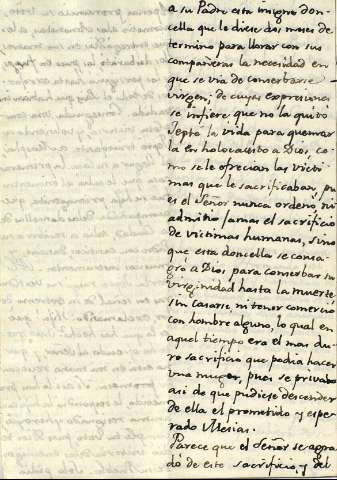 a su Padre esta insigne don-
cella que le diese dos meses de
termino para llorar con sus
compañeras la necesidad en
que se via de conserbarse
virgen; de cuyas expresiones
se infiere, que no la quitó
Jepte la vida para quemar
la en holocausto a Dios, co-
mo se le ofrecian las victi
mas que le sacrificaban, pu
es el Señor nunca ordenó, ni
admitio jamas el sacrificio
de victimas humanas, sino
que esta doncella se consa-
gró a Dios para conserbar su
virginidad hasta la muerte
sin casarse, ni tener comercio
con hombre alguno, lo qual en
aquel tiempo era el mas du-
ro sacrificio que podia hacer
una muger, pues se privaba
asi de que pudiese descender
de ella el prometido y espe-
rado Mesias.
Parece que el Señor se agra
dó de este sacrificio, y del